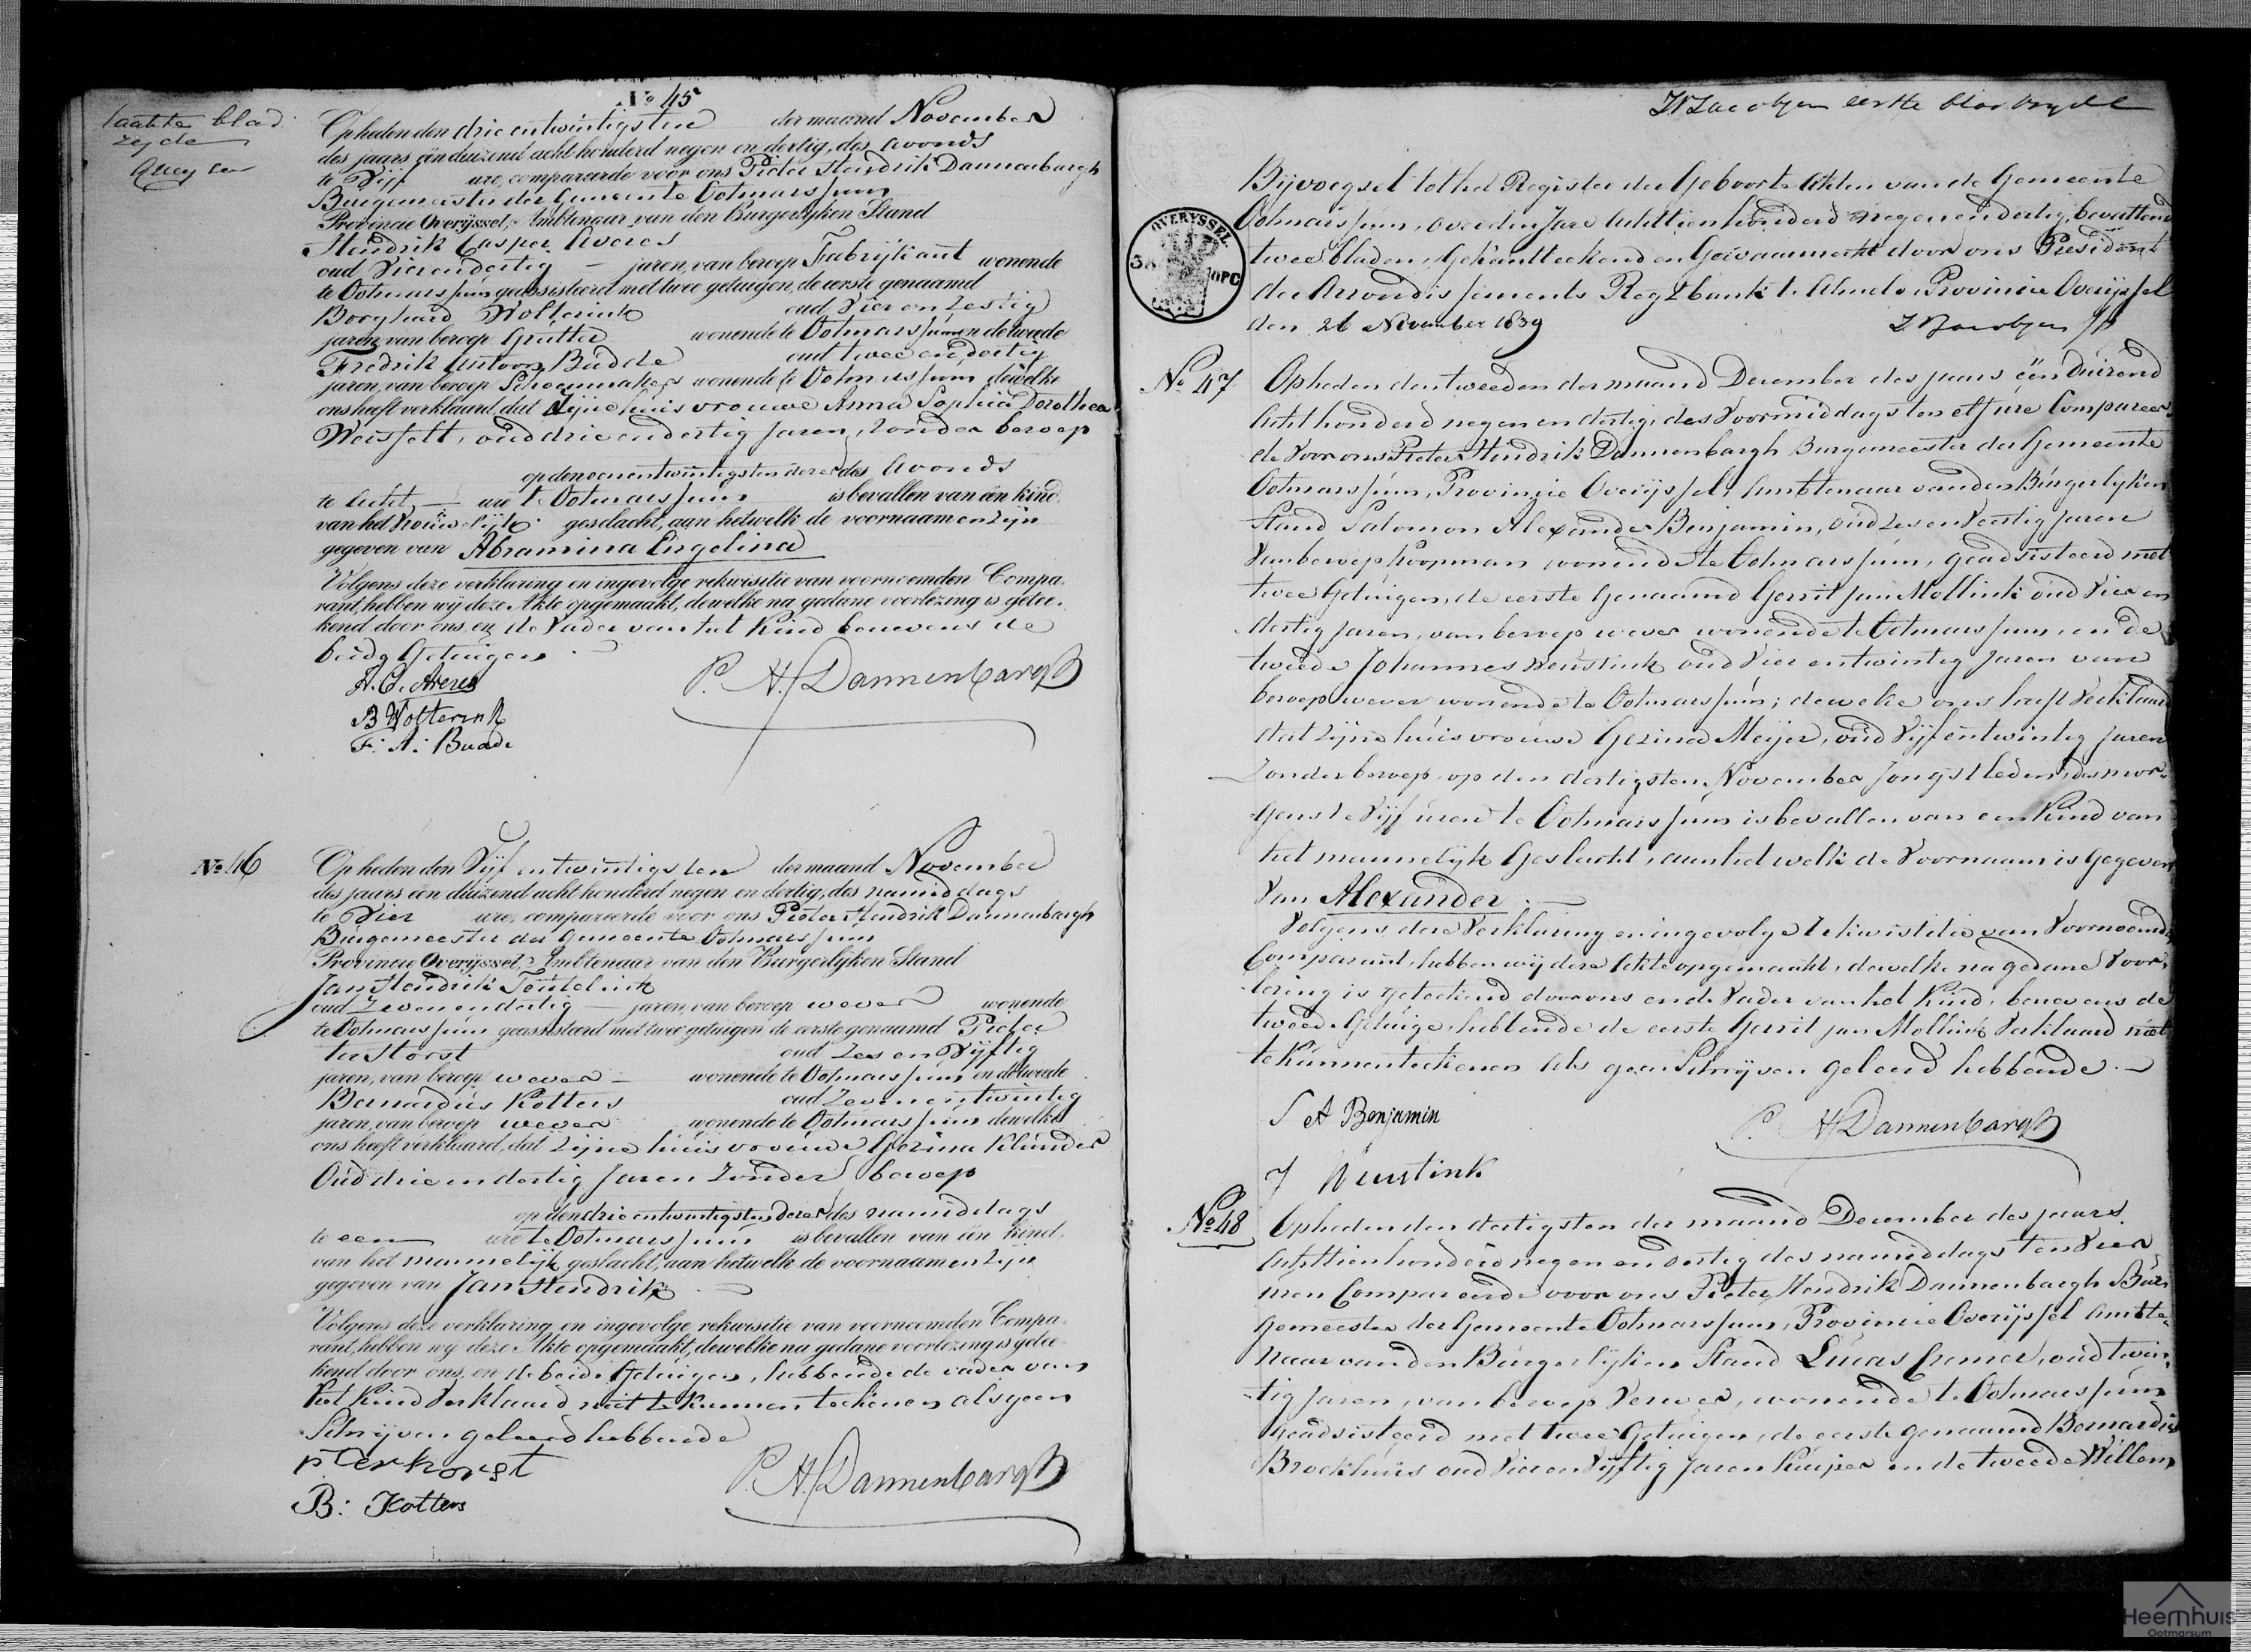 laatste blad
zyde
No 45
Op heden den drie entwintigsten der maand November
des jaars één duizend acht honderd negen en dertig, des avonds
te Vijf ure, compareerde voor ons Pieter Hendrik Dannenbargh
Burgemeester der Gemeente Ootmarssum
Provincie Overijssel, Ambtenaar van den Burgerlyken Stand
Hendrik Casper Averes
oud Vierendertig — jaren, van beroep Fabrijkant wonende
te Ootmarssum geassisteerd met twee getuigen, de eerste genaamd
Borghard Wolterink oud Vier en Zestig
jaren, van beroep Grutter wonende te Ootmarssum en de tweede
Fredrik Antoon Budde oud twee endertig
jaren, van beroep Schoenmaker wonende te Ootmarssum dewelke
ons heeft verklaard, dat Zijne huisvrouwe Anna Sophia Dorothea
Weisfelt, oud drie en dertig Jaren, Zonder beroep
op den eenentwintigsten dezer des Avonds
te Acht — ure te Ootmarssum is bevallen van één kind
van het Vrouwelijk geslacht, aan hetwelk de voornaam en zijn
gegeven van Abramina Engelina
Volgens deze verklaring en ingevolge rekwisitie van voornoemden Compa-
rant, hebben wij deze Akte opgemaakt, dewelke na gedane voorlezing is getee-
kend door ons, en de Vader van het Kind benevens de
beide Getuigen
H. C. Averes
P. H. Dannenbargh
B Wolterink
F: A: Budde
No 46
Op heden den Vijf entwintigsten der maand November
des jaars één duizend acht honderd negen en dertig, des namiddags
te Vier ure, compareerde voor ons Pieter Hendrik Dannenbargh
Burgemeester der Gemeente Ootmarssum
Provincie Overijssel, Ambtenaar van den Burgerlyken Stand
Jan Hendrik Teutelink
oud Zevenendertig — jaren, van beroep wever wonende
te Ootmarssum geassisteerd met twee getuigen, de eerste genaamd Pieter
ter Horst oud Zes en Vijftig
jaren, van beroep wever — wonende te Ootmarssum en de tweede
Bernardus Kotters oud Zevenentwintig
jaren, van beroep wever wonende te Ootmarssum dewelke
ons heeft verklaard, dat Zijne huisvrouwe Gezina Klunder
Oud drie en dertig Jaren Zonder beroep
op den drie entwintigsten dezer des namiddags
te een ure te Ootmarssum is bevallen van één kind,
van het mannelijk geslacht, aan hetwelk de voornaam en zijn
gegeven van Jan Hendrik —
Volgens deze verklaring, en ingevolge rekwisitie van voornoemden Compa-
rant, hebben wy deze Akte opgemaakt, dewelke na gedane voorlezing is getee-
kend door ons, en de beide Getuigen, hebbende de vader van
het Kind Verklaard niet te kunnen teekenen als geen
Schrijven geleerd hebbende
P Terhorst
P. H. Dannenbargh
B: Kotters
eerste bladzyde
Bijvoegsel tot het Register der Geboorte Akten van de Gemeente
Ootmarssum, over den Jare Achttienhonderd negenendertig, bevattende
twee bladen, Gekantteekend en Gewaarmerkt door ons President
der Arrondissements Regtbank te Almelo Provincie Overijssel
den 26 November 1839
OVERYSSEL.
No 47 Op heden den tweeden der maand December des jaars één duizend
Acht honderd negen en dertig, des Voormiddags ten elf ure Compareer-
de Voor ons Pieter Hendrik Dannenbargh Burgemeester der Gemeente
Ootmarssum, Provincie Overijssel, Ambtenaar van den Burgerlyken
Stand Salomon Alexander Benjamin, oud Zes en Veertig Jaren
Van beroep Koopman wonende te Ootmarssum, geadsisteerd met
twee Getuigen, de eerste Genaamd Gerrit Jan Mollink oud Vier en
dertig Jaren, van beroep wever wonende te Ootmarssum, en de
tweede Johannes Neustink oud Vier entwintig Jaren van
beroep wever wonende te Ootmarssum; dewelke ons heeft Verklaard
dat Zijne huisvrouwe Gezina Meijer, oud Vijf entwintig Jaren
Zonder beroep op den dertigsten November Jongstleden, des mor-
gens te Vijf uren te Ootmarssum is bevallen van een kind van
het mannelijk Geslacht, aan het welk de Voornaam is Gegeven
Van Alexander —
Volgens deze Verklaring en ingevolge Rekwisitie van Voornoemden
Comparant, hebben wij deze Akte opgemaakt, dewelke na gedane Voor-
lezing is geteekend door ons en de Vader van het Kind, benevens de
tweede Getuige, hebbende de eerste Gerrit Jan Mollink Verklaard niet
te kunnen teekenen Als geen Schrijven geleerd hebbende —
S A Benjamin
P. H. Dannenbargh
J Neustink
No 48 Op heden den dertigsten der maand December des jaars
Achttienhonderd negen en dertig des namiddags ten Vier
uren Compareerde voor ons Pieter Hendrik Dannenbargh Bur-
gemeester der Gemeente Ootmarssum, Provincie Overijssel Ambte-
naar van den Burgerlijken Stand Lucas Cremer, oud twin-
tig Jaren, van beroep Verwer, wonende te Ootmarssum
Geadsisteerd met twee Getuigen, de eerste genaamd Bernardus
Broekhuis oud Vier en Vijftig Jaren Kuiper en de tweede Willem
Heemhuis
Ootmarsum